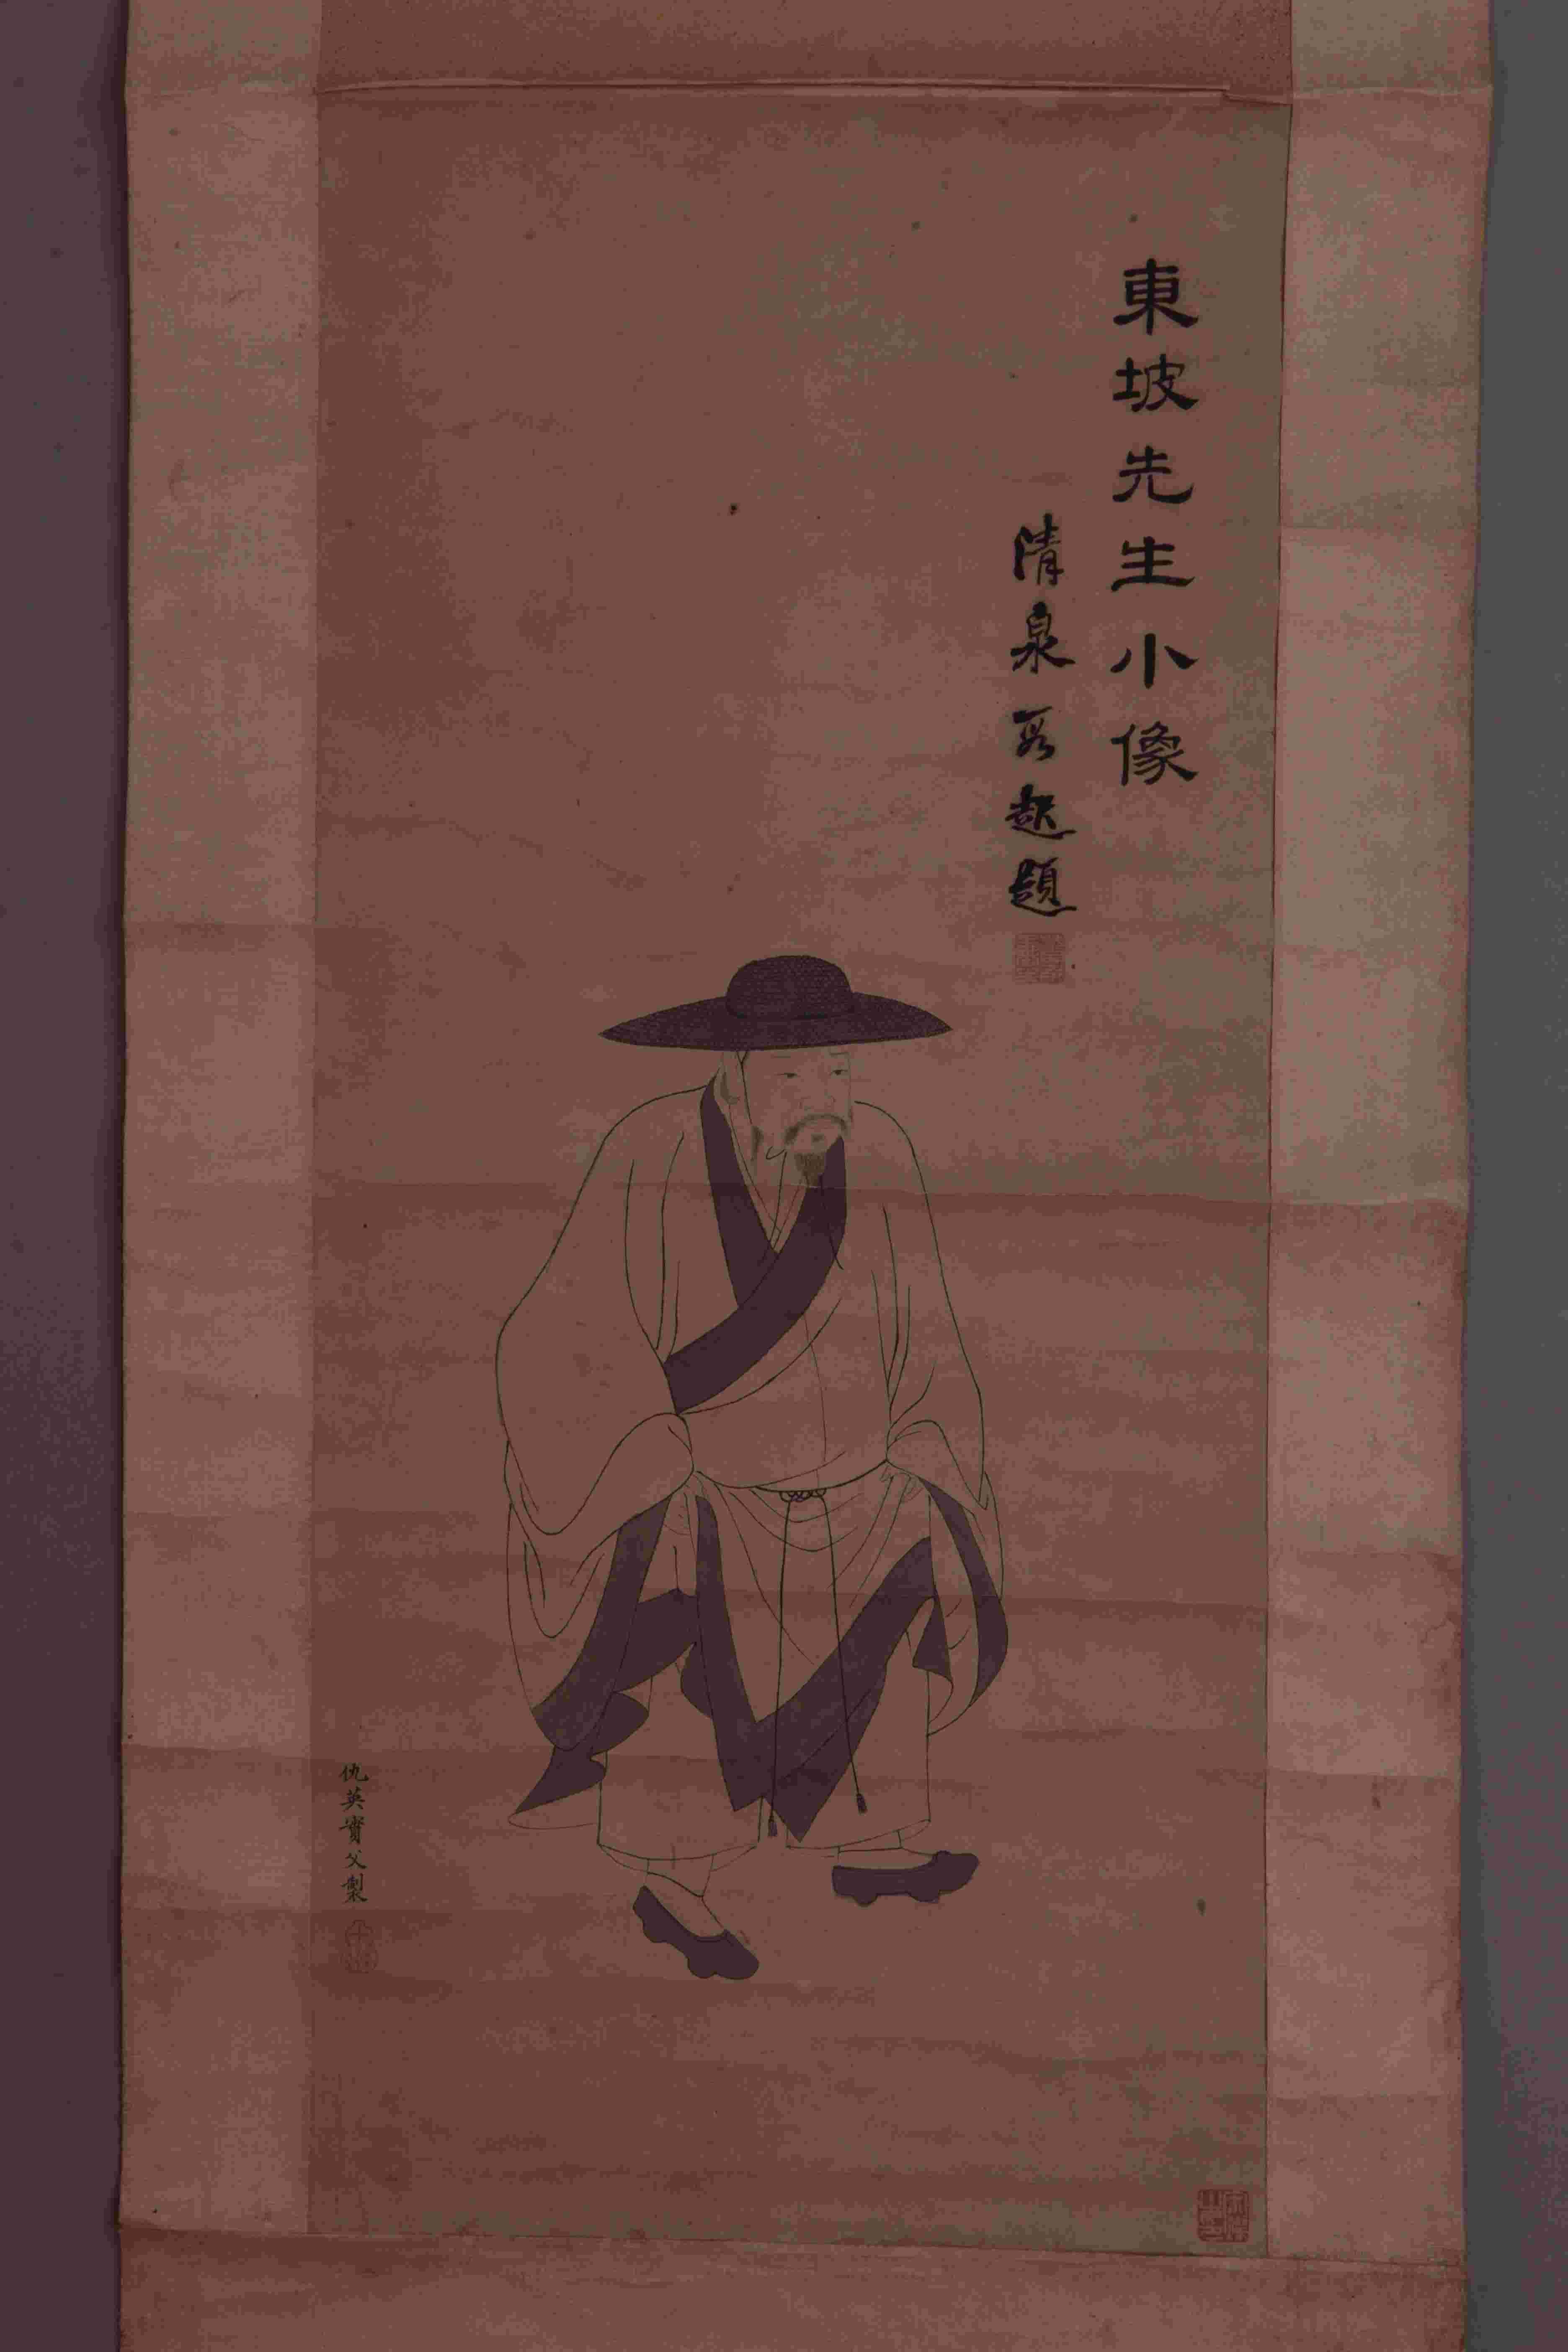 東坡先生小像
清泉段起題
仇英實父製